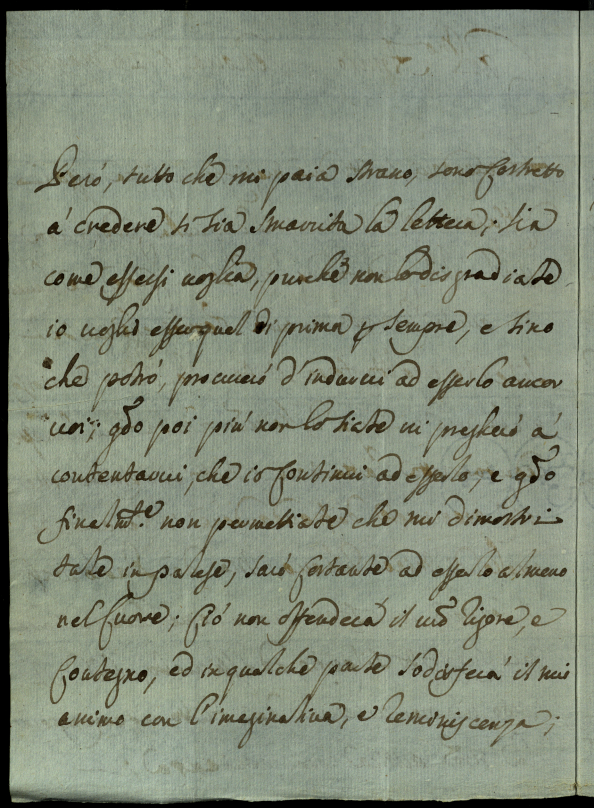 Peró, tutto che mi paia strano, sono costretto
á credere si sia smarrita la lettera; sia
come essersi voglia, purché non lo disgradiate
io voglio esser quel di prima p sempre, e sino
che potró, procureró d'indurvi ad esserlo ancor
voi; qdo poi piú non lo siate vi pregheró á
contentarvi, che io continui ad esserlo, e qdo
finalmte. non permettiate che mi dimostri
tale in palese, saró costante ad esserlo almeno
nel cuore; ció non offenderá il vro rigore, e
contegno, ed in qualche parte sodisferá il mio
animo con l'imaginativa, e remoniscenza;